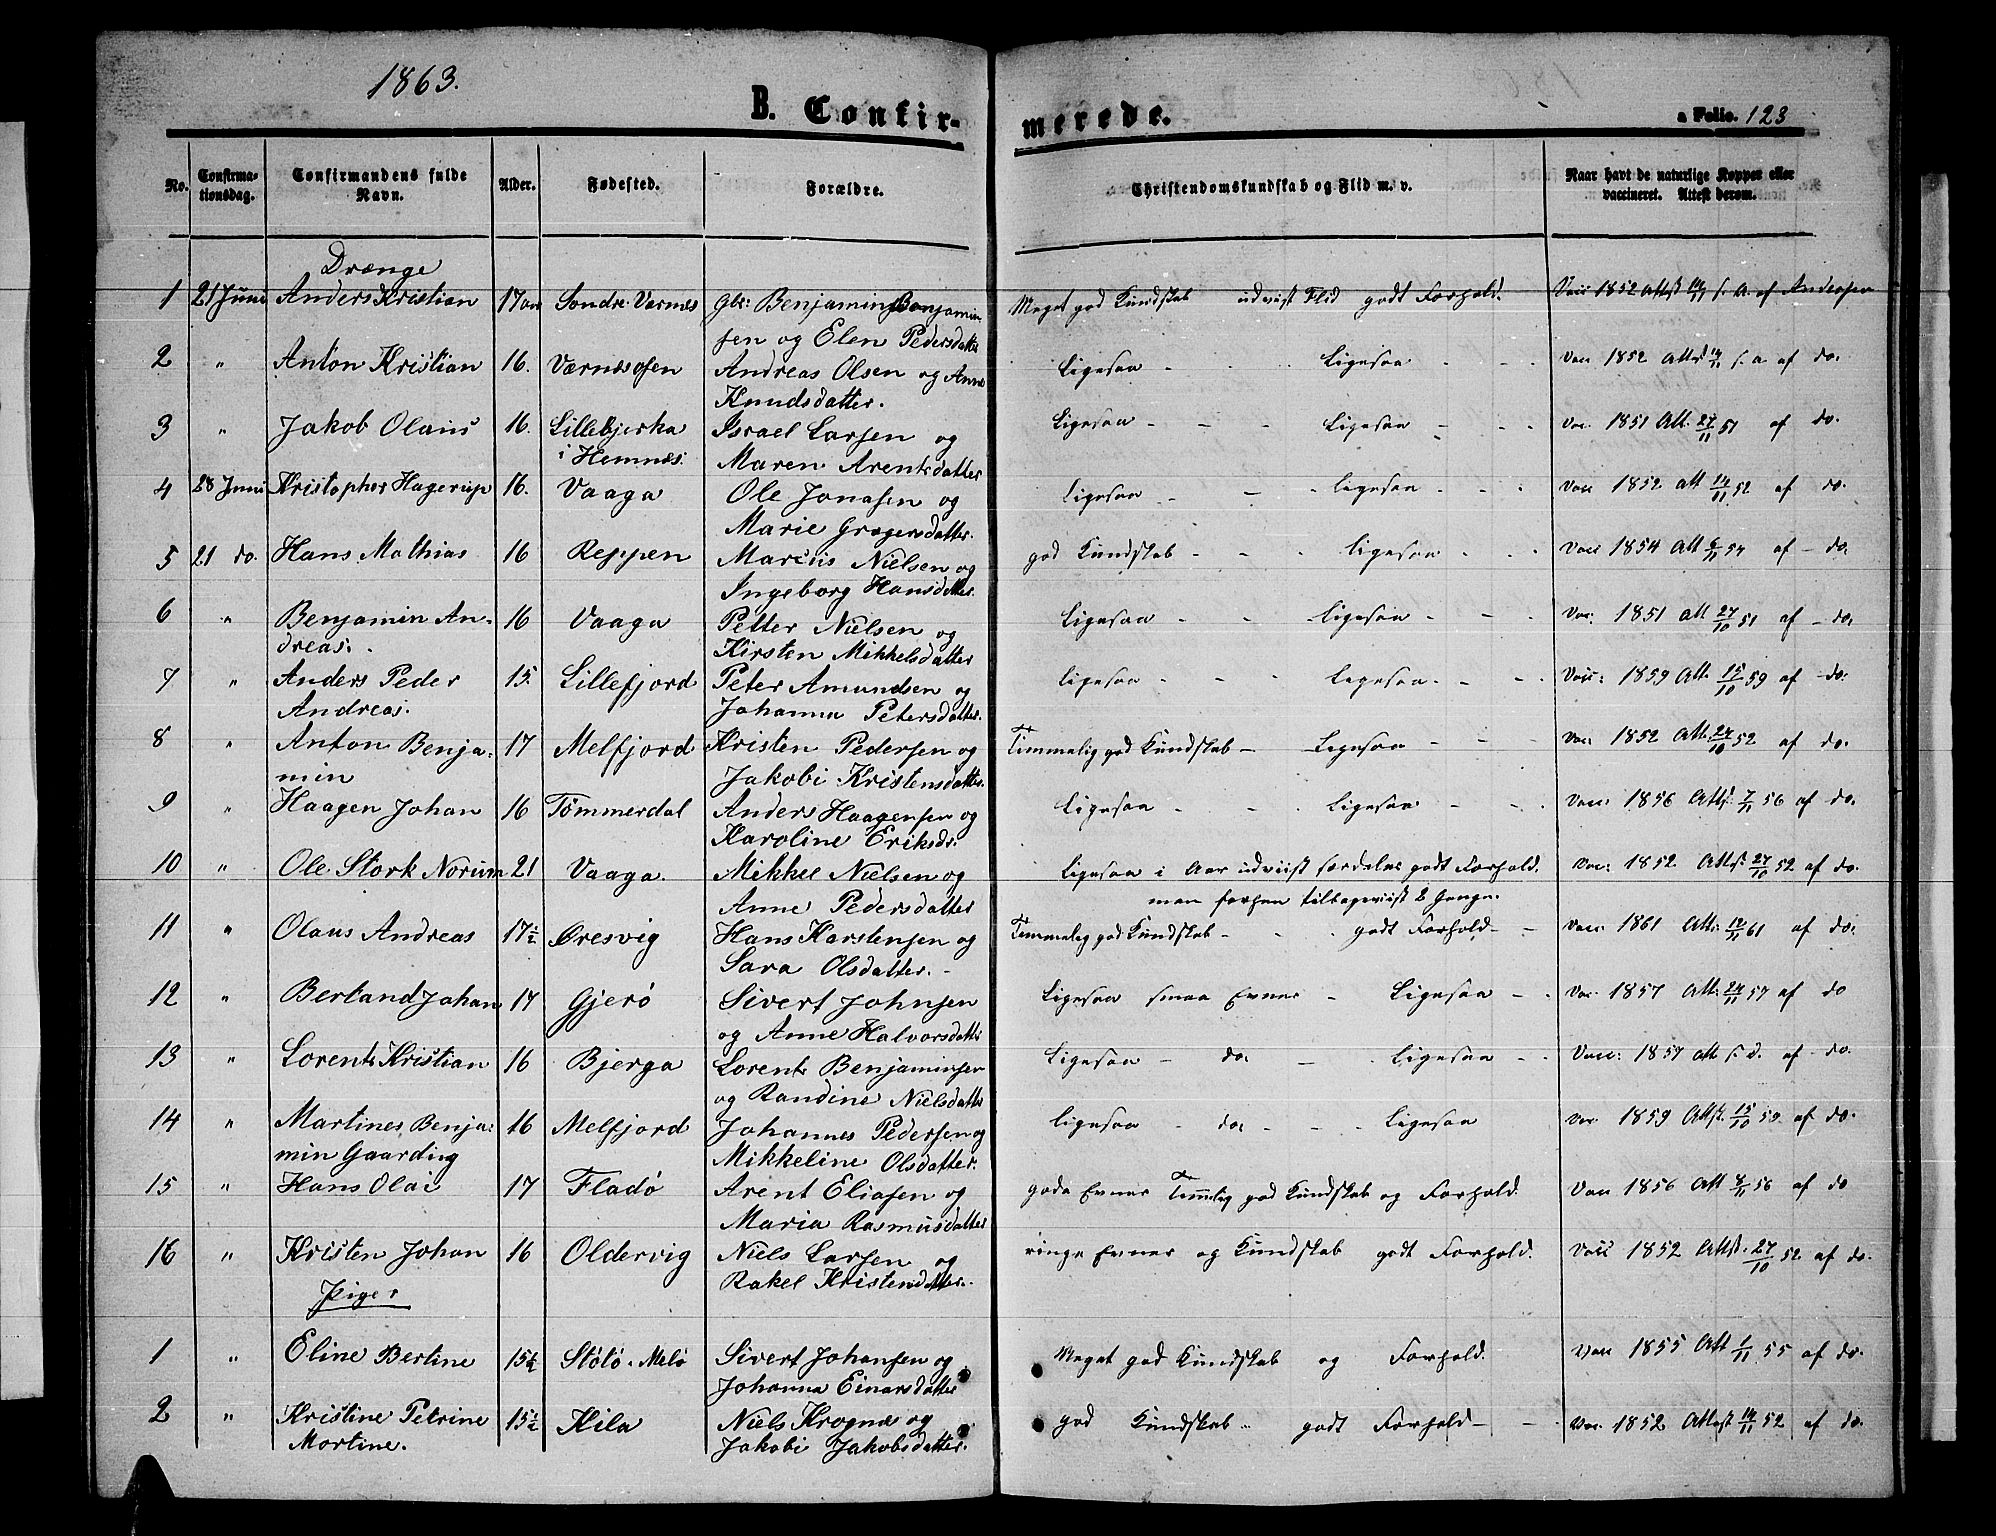 1863.
B. Confir-
merede.
a Folio. 123
No. Confirma-tionsdag. Confirmandens fulde Navn. Alder. Fødested. Forældre. Christendomskundskab og Flid m. v. Naar havt de naturlige Kopper eller vaccineret. Attest derom.
Drænge
1 21 Juni Anders Kristian 17 Søndre Værnes Gbr: Benjamin Benjamin- Meget god Kundskab udviist Flid godt Forhold. Vacc 1852 Attst 14/11 s. a. af Andersen
sen og Elen Pedersdatter
2 " Anton Kristian 16. Værnesosen Andreas Olsen og Anne Ligesaa - Ligesaa - - Vacc 1852 Attst 14/11 s. a af do.
Knudsdatter.
3 " Jakob Olaus 16. Lillebjerka Israel Larsen og Ligesaa - - - Ligesaa - - - Vac. 1851 Att. 27/11 51 af do.
i Hemnæs. Maren Arentsdatter
4 28 Juni Kristopher Hagerup 16. Vaaga Ole Jonasen og Ligesaa - - Ligesaa - - - Vacc 1852 att 14/11 52 af do.
Marie Gregersdatter.
5 21 do. Hans Mathias 16 Reppen Marcius Nielsen og god Kundskab - - - Ligesaa - - Vacc 1854 Att 6/11 54 af - do.
Ingeborg Hansdatter.
6 " Benjamin An- 16 Vaaga Petter Nielsen og Ligesaa - - Ligesaa - - Vac: 1851 att 27/10 51 af - do.
dreas. Kirsten Mikkelsdatter
7 " Anders Peder 15. Lillefjord Peter Amundsen og Ligesaa - - Ligesaa - - - Vacc: 1859 Att. 15/10 59 af - do.
Andreas. Johanna Petersdatter.
8 " Anton Benja- 17 Melfjord Kristen Pedersen og Temmelig god Kundskab - Ligesaa - - Vac. 1852 Att. 24/10 52 af do.
min Jakobi Kristensdatter.
9 " Haagen Johan 16 Tømmerdal Anders Haagensen og Ligesaa - - Ligesaa - - Vacc: 1856 Attst. 7/11 56 af do.
Karoline Eriksdr.
10 " Ole Stork Norum 21 Vaaga. Mikkel Nielsen og Ligesaa i Aar udviist særdeles godt Forhold. Vac: 1852. Attst. 27/10 52 af do.
Anne Pedersdatter men forhen tilbageviist 2 Gange.
11 " Olaus Andreas 17½ Øresvig Hans Karstensen og Temmelig god Kundskab - - godt Forhold - - Vacc: 1861 Att. 12/11 61 af do.
Sara Olsdatter. -
12 " Bertand Johan 17 Gjerø Sivert Johnsen Ligesaa smaa Evner - Ligesaa - - Vac. 1857 Att. 24/11 57 af do
og Anne Halvorsdatter
13 " Lorents Kristian 16 Bjerga Lorents Benjaminsen Ligesaa - do. - - Ligesaa - - Vacc: 1857 att s. d. af - do.
og Randine Nielsdatter
14 " Martines Benja- 16 Melfjord Johannes Pedersen og Ligesaa - do. - - Ligesaa Vac 1859 Attst. 15/10 59. af do.
min Gaarding Mikkeline Olsdatter.
15 " Hans Olai 17 Fladø Arent Eliasen og gode Evner Temmelig god Kundskab og Forhold. Vacc 1856 Att 8/11 56 af do
Maria Rasmusdatter
16 " Kristen Johan 16 Oldervig Niels Larsen og ringe Evner og Kundskab godt Forhold. Vacc 1852 Attst. 27/10 52. af do.
Rakel Kristensdatter.
Piger
1 " Eline Bertine 15½ Støtø. Melø Sivert Johansen og Meget god Kundskab og Forhold. Vacc 1855 Att 1/11 55 af do.
Johanna Einarsdatter
2 " Kristine Petrine 15½ Kila Niels Krognæs og god Kundskab godt Forhold - - Vac. 1852 Attest 14/11 52 af do.
Mortine. Jakobi Jakobsdatter.